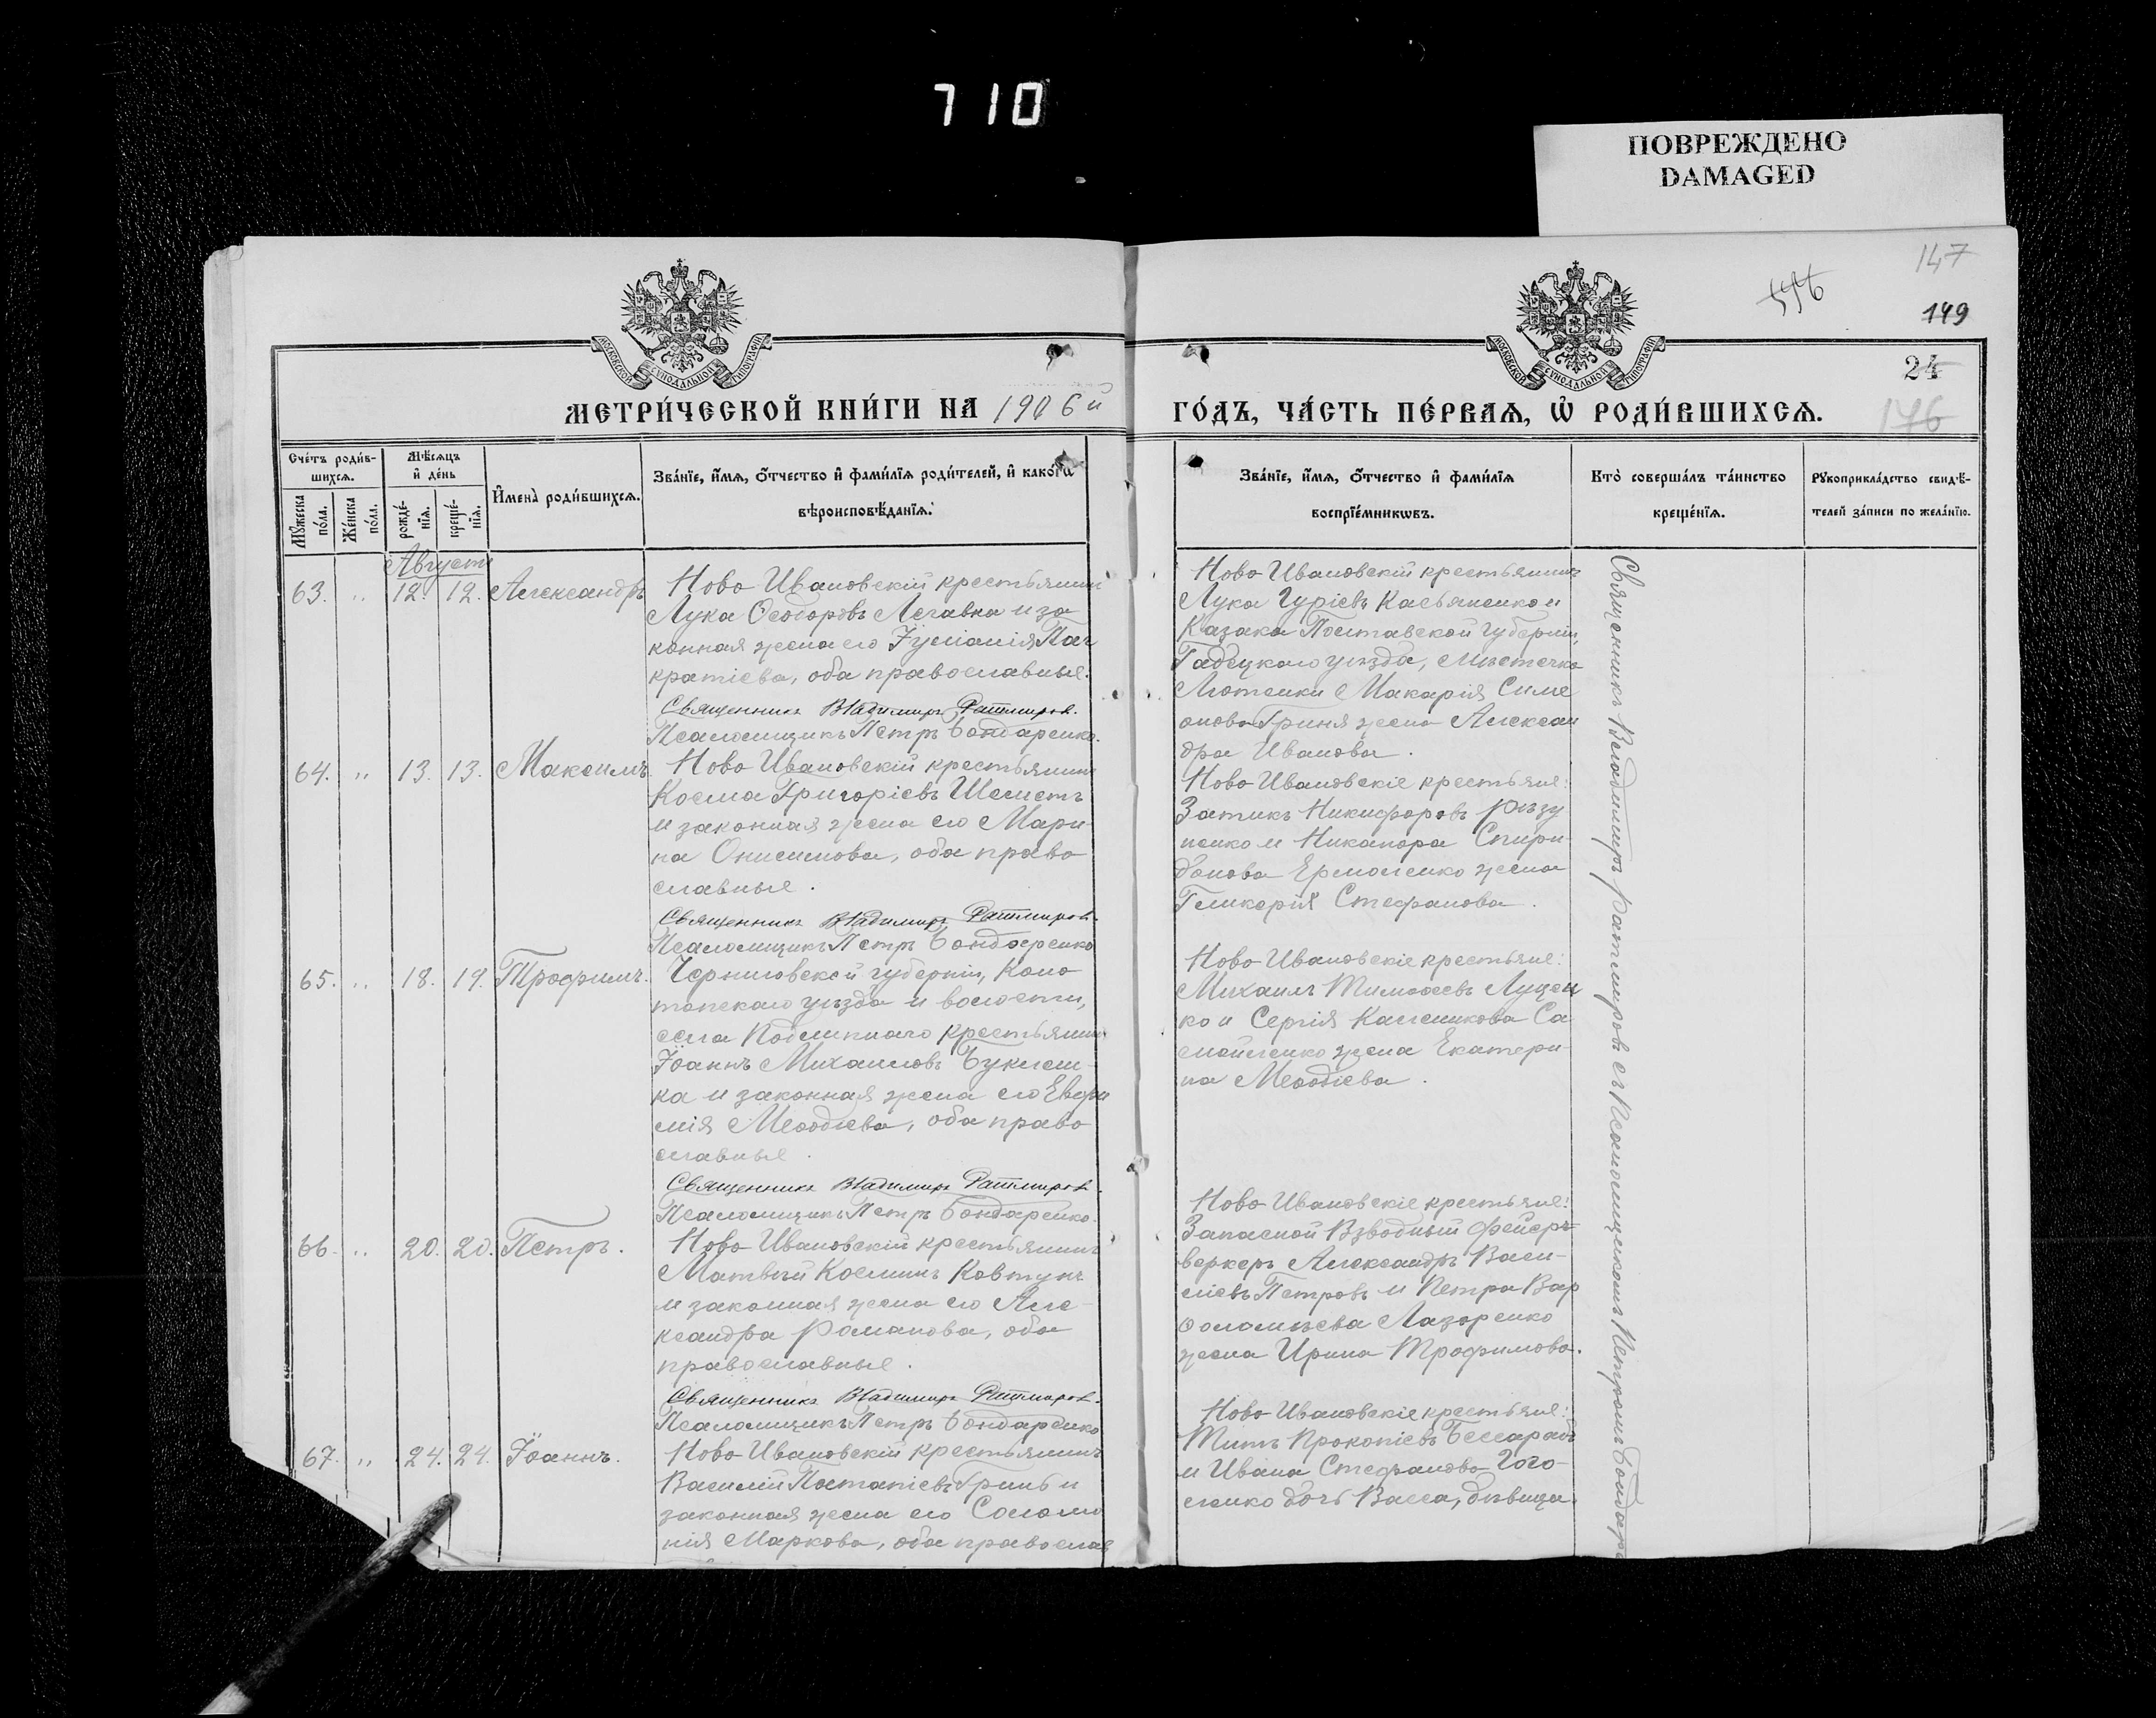 710
ПОВРЕЖДЕНО
DAMAGED
147
149
24
176
МОСКОВСКОЙ СѴНОДАЛЬНОЙ ТИПОГРАФІИ
МОСКОВСКОЙ СѴНОДАЛЬНОЙ ТИПОГРАФІИ
МЕТРИ́ЧЕСКОЙ КНИ́ГИ НА 1906й
ГО́ДЪ, ЧА́СТЬ ПЕ́РВАѦ, Ѡ҆ РОДИ́ВШИХСѦ.
Сче́тъ роди́в-
шихсѧ.
Мꙋ́жеска по́ла.
Же́нска по́ла.
Мѣ́сѧцъ
и҆ де́нь
рожде́-
нїѧ.
креще́-
нїѧ.
И҆мена̀ роди́вшихсѧ.
Зва́нїе, и҆́мѧ, о҆́тчество и҆ фами́лїѧ роди́телей, и҆ како́гѡ
вѣроисповѣ́данїѧ.
Зва́нїе, и҆́мѧ, о҆́тчество и҆ фами́лїѧ
воспрїе́мникѡвъ.
Кто̀ соверша́лъ та́инство
креще́нїѧ.
Рꙋкоприкла́дство свидѣ́-
телей за́писи по жела́нїю.
Августъ
63. " 12. 12. Александръ
Ново Ивановскій крестьянинъ
Лука Ѳеодоровъ Легавка и за
конная жена его Іуліанія Пан
кратіева, оба православные.
Священникъ Владимиръ Ратмировъ.
Псаломщикъ Петръ Бондаренко.
Ново Ивановскій крестьянинъ
Лука Гуріевъ Касьяненко и
Казака Полтавской губерніи,
Гадецкаго уѣзда, мѣстечка
Лютенки Макарія Симе
онова Гриня жена Алексан
дра Иванова.
64. " 13. 13. Максимъ
Ново Ивановскій крестьянинъ
Косма Григоріевъ Шелестъ
и законная жена его Мари-
на Онисимова, оба право
славные.
Священникъ Владимиръ Ратмировъ.
Псаломщикъ Петръ Бондаренко
Ново Ивановскіе крестьяне:
Никифоровъ Рѣзу
ненко и Никанора Спири-
донова Ермоленко жена
Гликерія Стефанова.
65. " 18. 19. Трофимъ.
Черниговской губерніи, Коно
топскаго уѣзда и волости,
села Подлипнаго крестьянинъ
Іоаннъ Михаиловъ
ка и законная жена его Евфи
мія Меѳодіева, оба право
славные.
Священникъ Владимиръ Ратмировъ.
Псаломщикъ Петръ Бондаренко.
Ново Ивановскіе крестьяне:
Михаилъ Тимоѳеевъ Луцен
ко и Сергія Каленикова Са
мойленко жена Екатери-
на Меѳодіева.
66. " 20. 20. Петръ.
Ново Ивановскій крестьянинъ
Матвѣй Косминъ Ковтунъ
и законная жена его Але-
ксандра Романова, оба
православные.
Священникъ Владимиръ Ратмировъ.
Псаломщикъ Петръ Бондаренко
Ново Ивановскіе крестьяне:
Запасной Взводный фейер-
веркеръ Александръ Васи-
ліевъ Петровъ и Петра Вар
ѳоломѣева Лазоренко
жена Ирина Трофимова.
67. " 24. 24. Іоаннъ.
Ново Ивановскій крестьянинъ
Василій Потапіевъ Гринь и
законная жена его Соломо
нія Маркова, оба православ
Ново Ивановскіе крестьяне:
Титъ Прокопіевъ Бессарабъ
и Ивана Стефанова Гого-
ленко дочь Васса, дѣвица.
Священникъ Владимиръ Ратмировъ съ псаломщикомъ Петромъ Бондаре